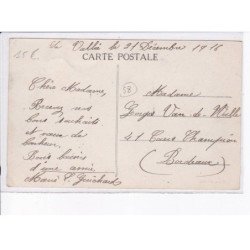 La Vallée le 21 Décembre 1918
15 €
CARTE POSTALE
58
Chère Madame,
Recevez nos
bons souhaits
et vœux de
bonheur.
Bons baisers
d'une amie.
Marie
Madame
Georges Van de
41 Cours Champion
(Bordeaux)